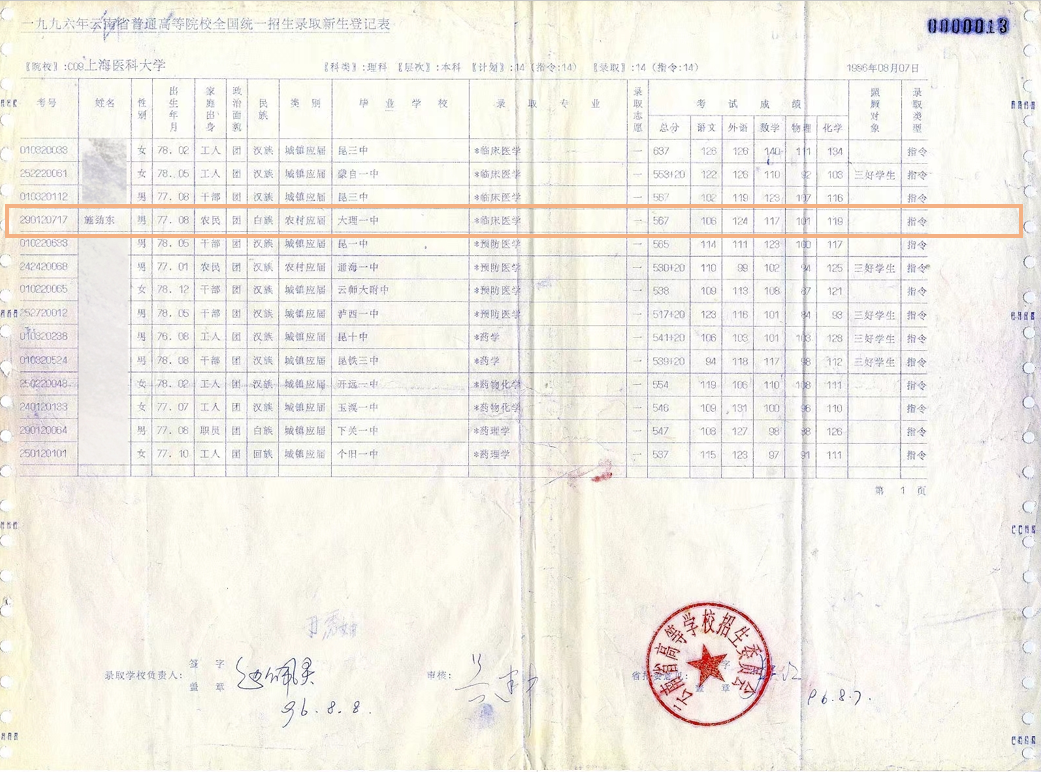 一九九六年云南省普通高等院校全国统一招生录取新生登记表
0000013
〖院校〗:C09上海医科大学 〖科类〗:理科 〖层次〗:本科 〖计划〗:14 (指令:14) 〖录取〗:14 (指令:14) 1996年08月07日
考号 姓名 性别 出生年月 家庭出身 政治面貌 民族 类别 毕业学校 录取专业 录取志愿 考试成绩 照顾对象 录取类型
总分 语文 外语 数学 物理 化学
010320033 女 78.02 工人 团 汉族 城镇应届 昆三中 *临床医学 一 637 126 126 140 111 134 指令
252220061 女 78.05 工人 团 汉族 城镇应届 蒙自一中 *临床医学 一 553+20 122 126 110 92 103 三好学生 指令
010320112 男 77.08 干部 团 汉族 城镇应届 昆三中 *临床医学 一 567 102 119 123 107 116 指令
290120717 施劲东 男 77.08 农民 团 白族 农村应届 大理一中 *临床医学 一 567 106 124 117 101 119 指令
010220633 男 78.05 干部 团 汉族 城镇应届 昆一中 *预防医学 一 565 114 111 123 100 117 指令
242420068 男 77.01 农民 团 汉族 农村应届 通海一中 *预防医学 一 530+20 110 99 102 94 125 三好学生 指令
010220065 女 78.12 干部 团 汉族 城镇应届 云师大附中 *预防医学 一 538 109 113 108 87 121 指令
252720012 男 78.05 干部 团 汉族 城镇应届 泸西一中 *预防医学 一 517+20 123 116 101 84 93 三好学生 指令
010320238 男 76.08 工人 团 汉族 城镇应届 昆十中 *药学 一 541+20 106 103 101 103 128 三好学生 指令
010320524 男 78.08 干部 团 汉族 城镇应届 昆铁三中 *药学 一 539+20 94 118 117 98 112 三好学生 指令
250220048 女 78.02 工人 团 汉族 城镇应届 开远一中 *药物化学 一 554 119 106 110 108 111 指令
240120133 女 77.07 工人 团 汉族 城镇应届 玉溪一中 *药物化学 一 546 109 131 100 96 110 指令
290120064 男 77.08 职员 团 白族 城镇应届 下关一中 *药理学 一 547 108 127 98 88 126 指令
250120101 女 77.10 工人 团 回族 城镇应届 个旧一中 *药理学 一 537 115 123 97 91 111 指令
第 1 页
云南省高等学校招生委员会
录取学校负责人: 签字 盖章
审核:
96.8.8.
96.8.7.